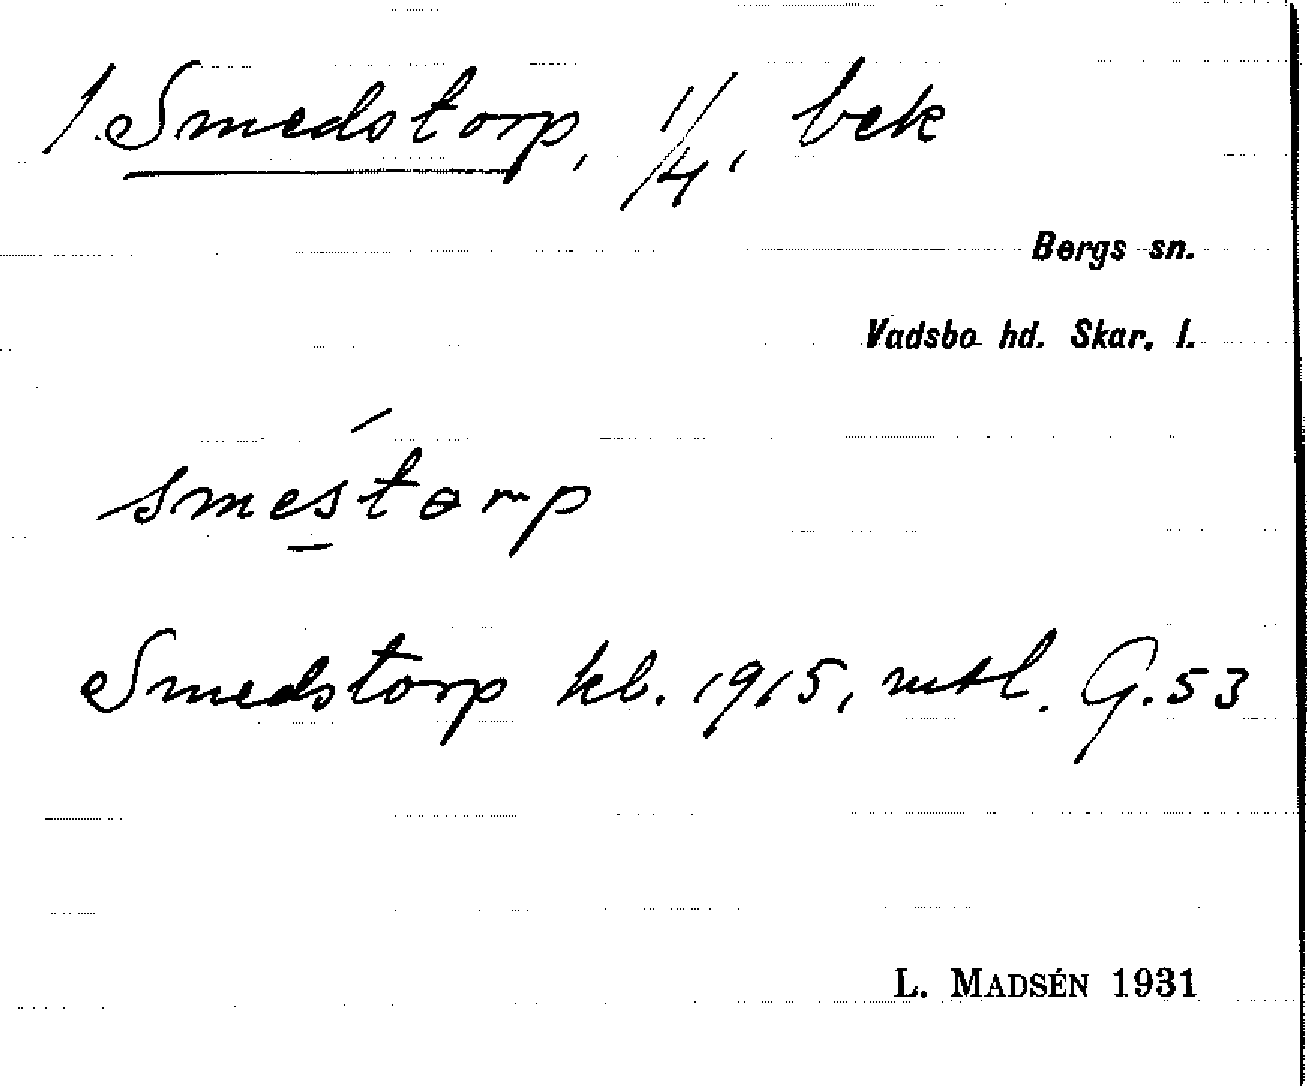 1. Smedstorp, 1/4, bek
Bergs sn.
Vadsbo hd. Skar. l.
smestɵrp
Smedstorp kb. 1915, mtl. G. 53
L. MADSÉN 1931